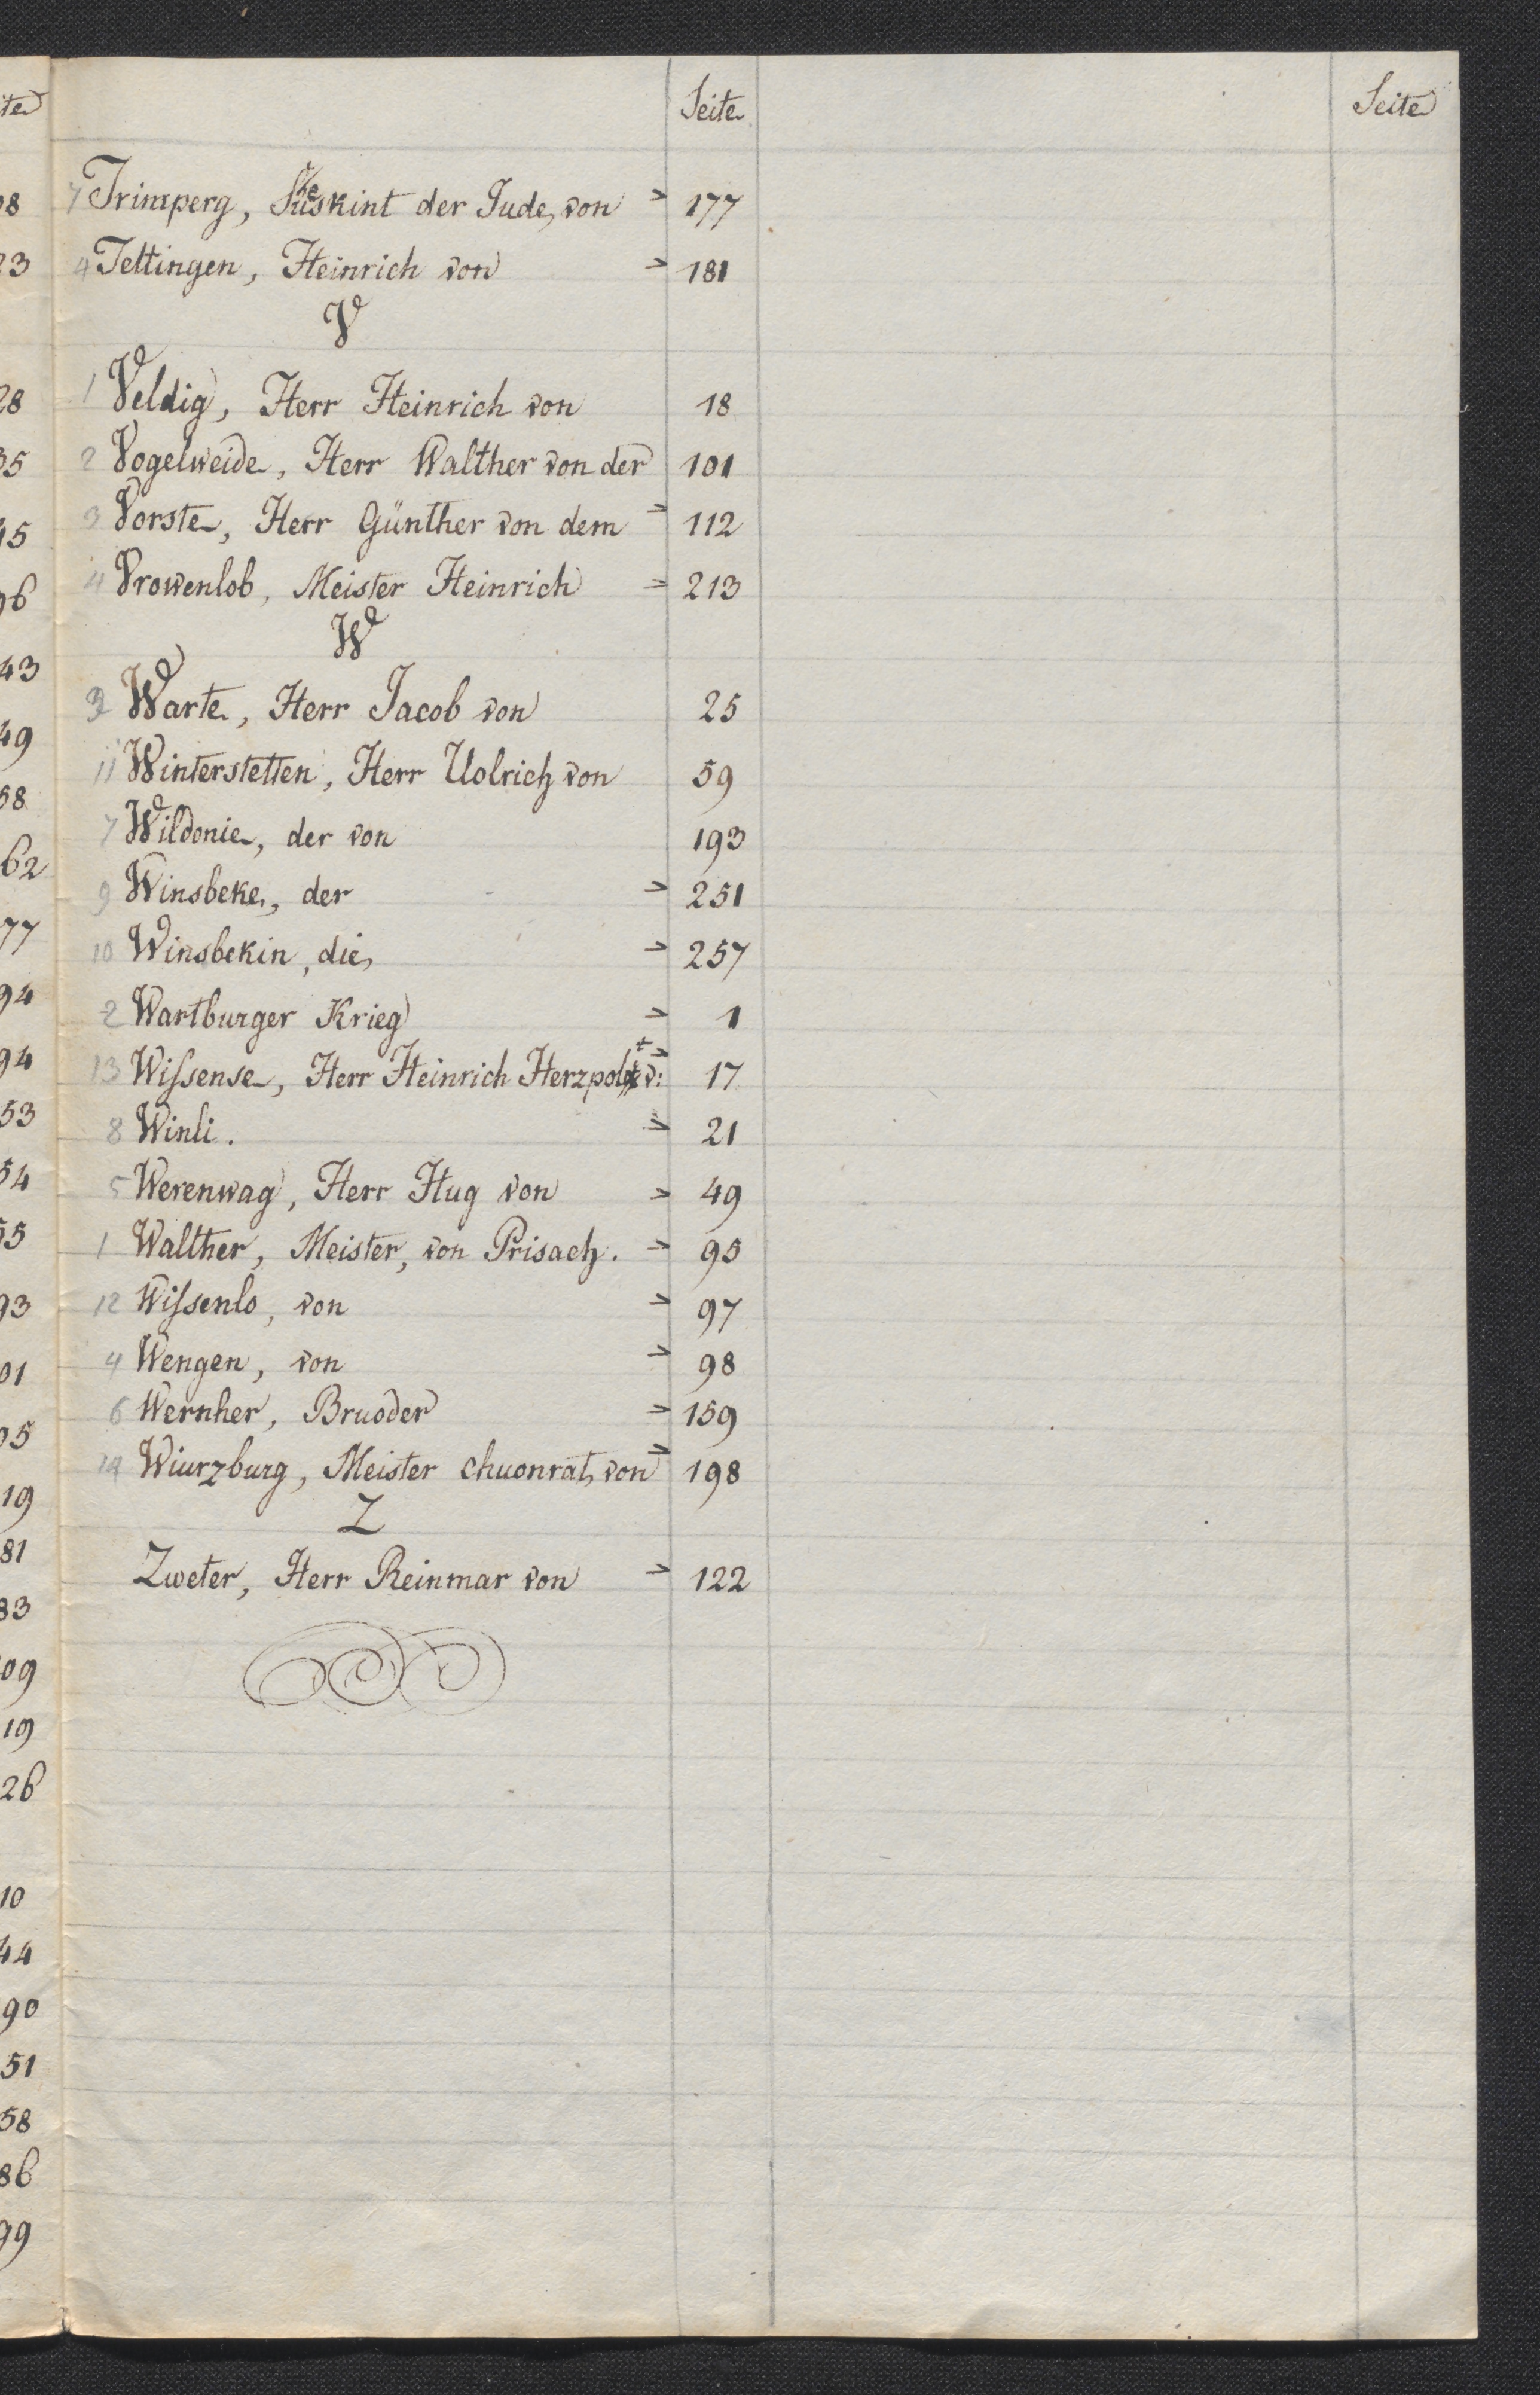 Seite Seite
7 Trimperg, Sueskint der Jude, von > 177
4 Tettingen, Heinrich von > 181
V
1 Veldig, Herr Heinrich von 18
2 Vogelweide, Herr Walther von der 101
3 Vorste, Herr Günther von dem > 112
4 Vrowenlob, Meister Heinrich > 213
W
3 Warte, Herr Jacob von 25
11 Winterstetten, Herr Uolrich von 59
7 Wildonie, der von 193
9 Winsbeke, der > 251
10 Winsbekin, die, > 257
2 Wartburger Krieg > 1
13 Wißense, Herr Heinrich v: > 17
8 Winli. > 21
5 Werenwag, Herr Hug von > 49
1 Walther, Meister, von Prisach. > 95
12 Wißenlo, von > 97
4 Wengen, von > 98
6 Wernher, Bruoder > 159
14 Wiurzburg, Meister chuonrat, von > 198
Z
Zweter, Herr Reinmar von > 122